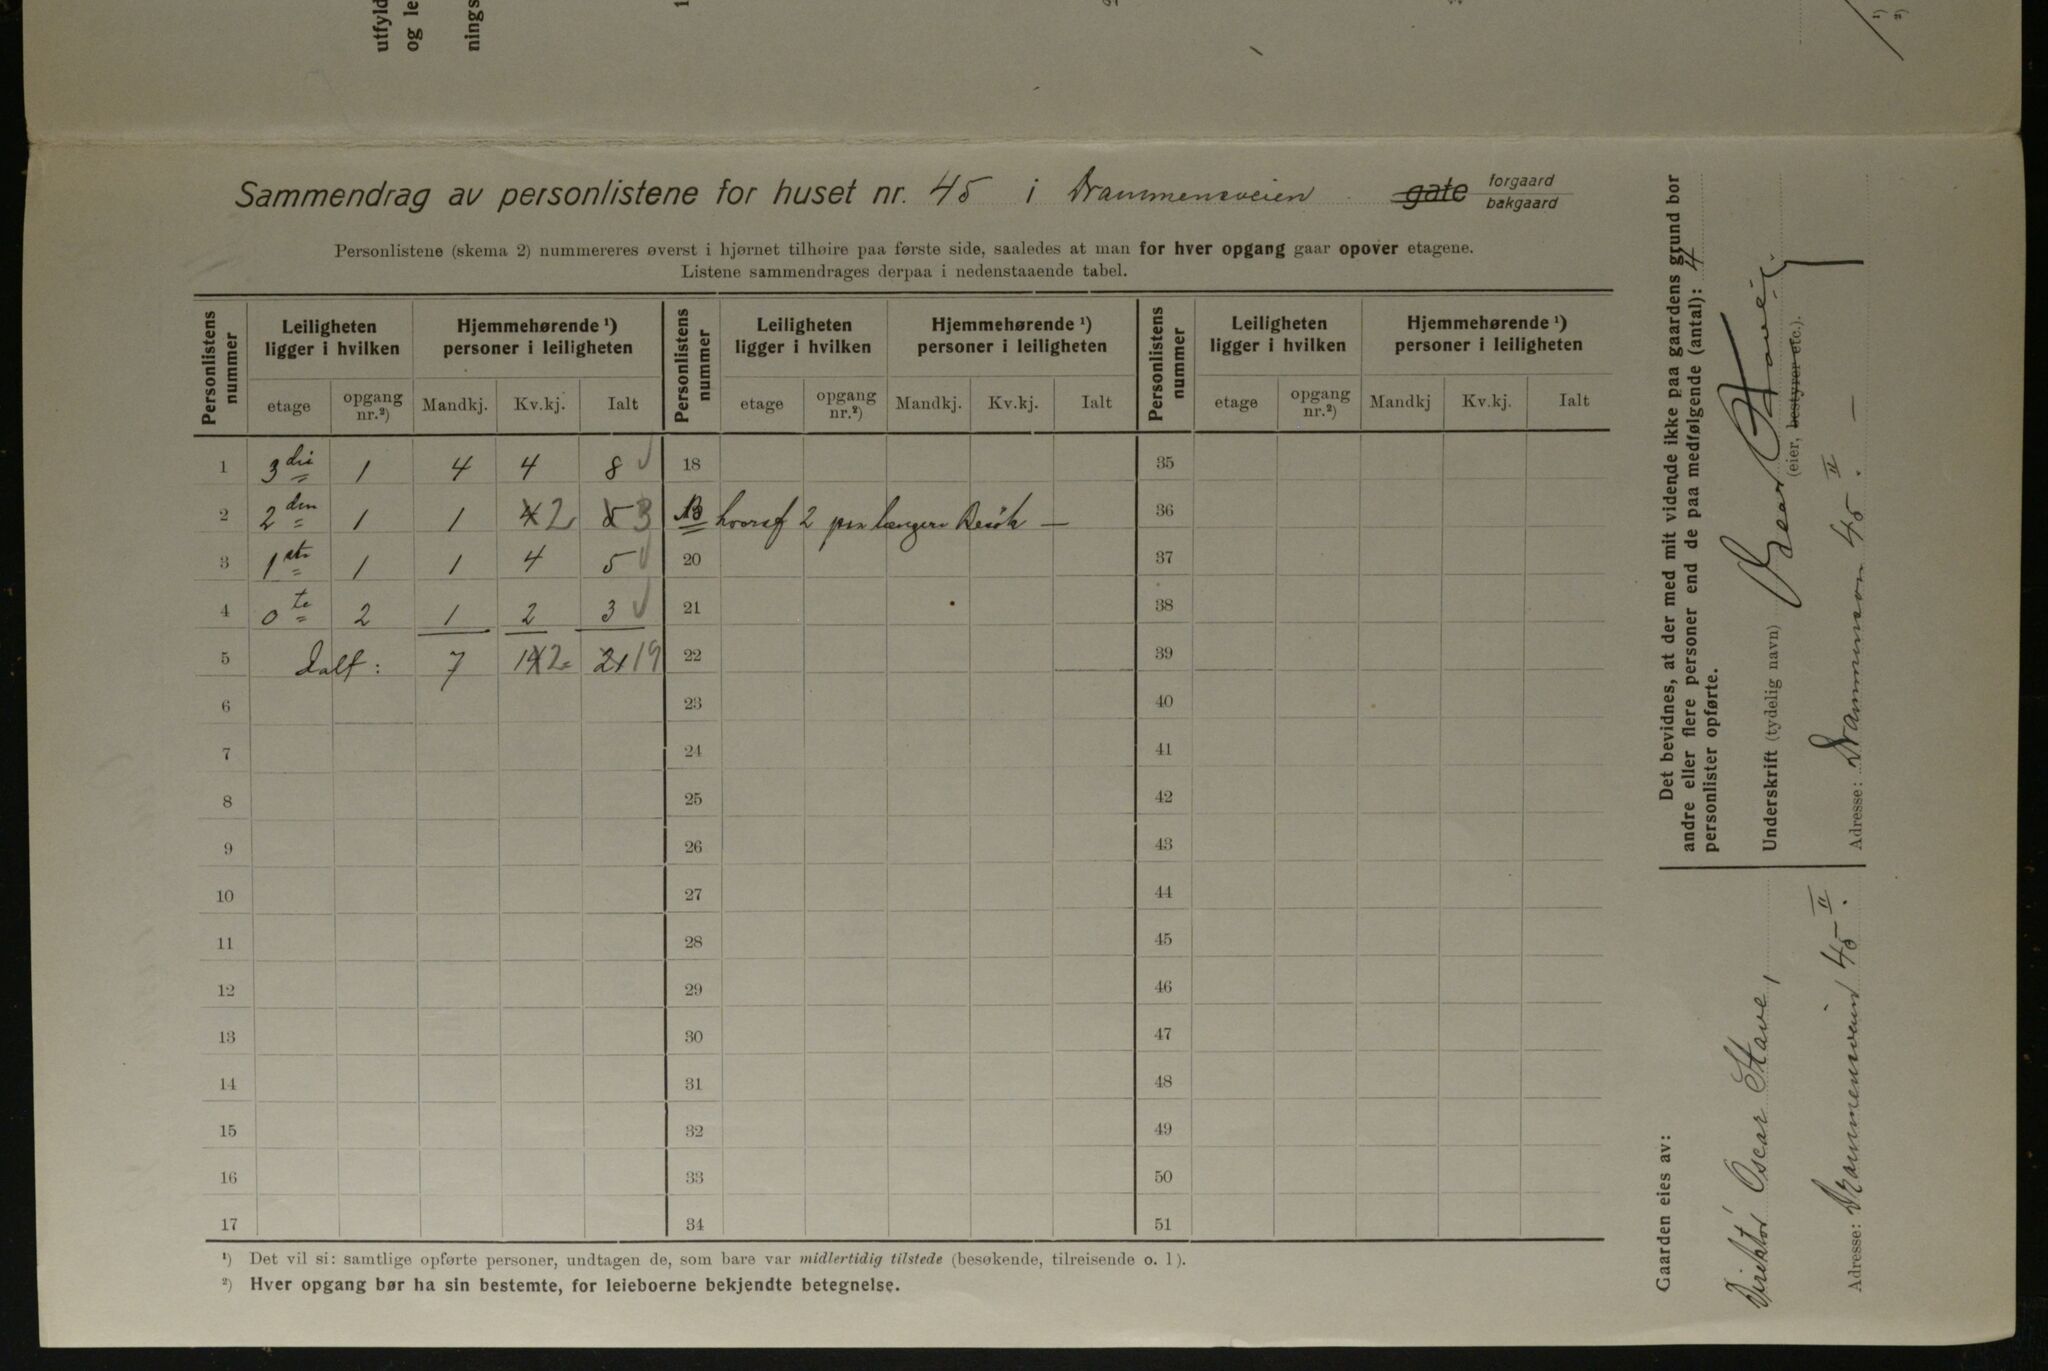 utfyld
og le
nings
1)
2)
Sammendrag av personlistene for huset nr. 45 i Drammensveien gate forgaard
bakgaard
Personlistene (skema 2) nummereres øverst i hjørnet tilhøire paa første side, saaledes at man for hver opgang gaar opover etagene.
Listene sammendrages derpaa i nedenstaaende tabel.
Personlistens nummer
Leiligheten ligger i hvilken
Hjemmehørende ¹) personer i leiligheten
etage
opgang nr.²)
Mandkj.
Kv.kj.
Ialt
Personlistens nummer
Leiligheten ligger i hvilken
Hjemmehørende ¹) personer i leiligheten
etage
opgang nr.²)
Mandkj.
Kv.kj.
Ialt
Personlistens nummer
Leiligheten ligger i hvilken
Hjemmehørende ¹) personer i leiligheten
etage
opgang nr.²)
Mandkj
Kv.kj.
Ialt
1 3die 1 4 4 8 18 35
2 2den 1 1 4 2 5 3 NB hvoraf 2 paa længere Besøk — 36
3 1ste 1 1 4 5 20 37
4 0te 2 1 2 3 21 38
5 Ialt: 7 14 12 21 19 22 39
6 23 40
7 24 41
8 25 42
9 26 43
10 27 44
11 28 45
12 29 46
13 30 47
14 31 48
15 32 49
16 33 50
17 34 51
¹) Det vil si: samtlige opførte personer, undtagen de, som bare var midlertidig tilstede (besøkende, tilreisende o. l).
²) Hver opgang bør ha sin bestemte, for leieboerne bekjendte betegnelse.
Det bevidnes, at der med mit vidende ikke paa gaardens grund bor
andre eller flere personer end de paa medfølgende (antal): 4
personlister opførte.
Underskrift (tydelig navn) Oscar Stave
(eier, bestyrer etc.).
Adresse: Drammensvn 45 II. —
Gaarden eies av:
Direktør Oscar Stave,
Adresse: Drammensveien 45 II.